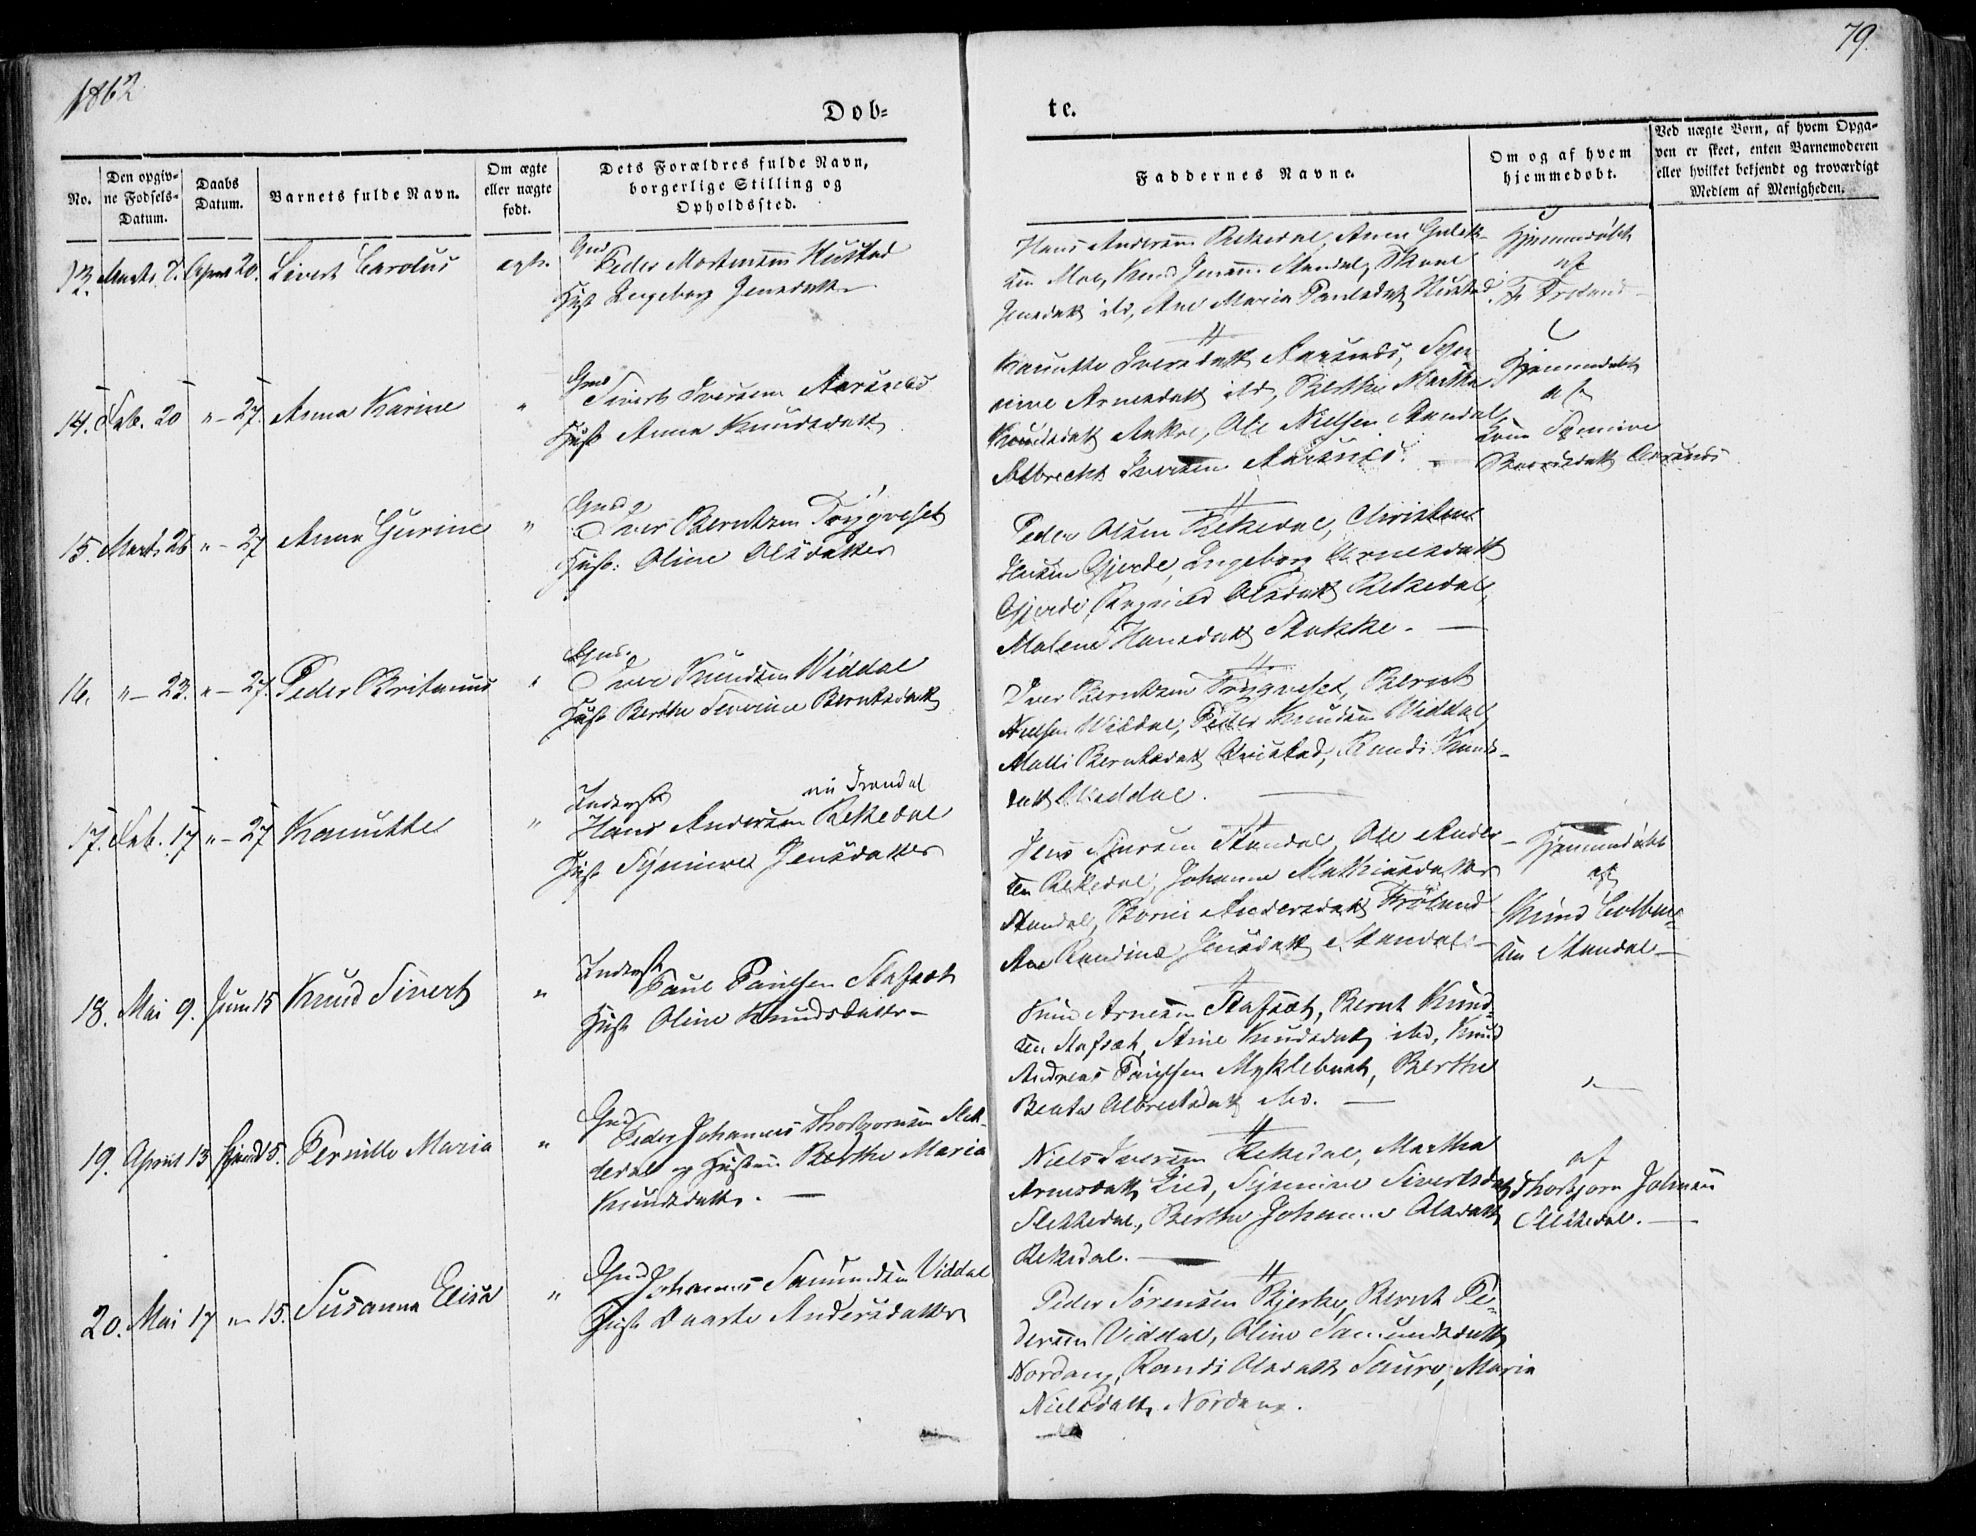 1862
79.
Dob=
te.
No.
Den opgiv=
ne Fødsels=
Datum.
Daabs
Datum.
Barnets fulde Navn.
Om ægte
eller uægte
født.
Dets Forældres fulde Navn,
borgerlige Stilling og
Opholdssted.
Faddernes Navne.
Om og af hvem
hjemmedøbt.
Ved uægte Børn, af hvem Opga=
ven er skeet, enten Barnemoderen
eller hvilket bekjendt og troværdigt
Medlem af Menigheden.
13. Marts 7. April 20. Sivert Carolus ægte.
Gmd
Peder Mortensen Hustad
Hust Ingeborg Jensdatter
Hans Andersen Rekkedal, Anen
Knud Jensen Standal,
Jensdatt ibd, Ane Maria Paulsdatt Hustad.
Hjemmedøbt
af
14. Feb. 20 " - 27. Anna Karine "
Gmd
Sivert Iversen Aarsnes
Hust Anna Knudsdatt
Knutte Iversdatt Aarsnes,
Arnesdatt ibd, Berthe Marthe
Knudsdatt Aakre, Ole Nielsen Standal,
Albrecht Iversen Aarsnes. -
Hjemmedøbt
af
Synnive
Aarsnes
15. Mart. 26 " - 27 Anna Gurine "
Gmd
Iver Berntsen Trygveset
Hust: Oline Olsdatter
Peder Olsen Rekkedal, Christen
Gjerde, Ingeborg Arnesdatt
Gjerde, Olsdatt Rekkedal,
Malene Hansdatt Stokke. -
16. " - 23. " - 27. Peder "
Gmd.
Iver Knudsen Widdal
Hust Berthe Severine Berntsdatt
Iver Berntsen Trygveset, Bernt
Nielsen Widdal, Peder Knudsen Widdal,
Malli Berntsdatt Randi Knuds-
datt Widdal. -
17. Feb. 17 " - 27 Knutte "
Inderst nu Trandal
Hans Andersen Rekkedal
Hust Synnive Jensdatter
Jens Standal, Ole Ander-
sen Rekkedal, Johanne Mathiasdatter
Standal, Andersdatt
Ane Jensdatt Standal. -
Hjemmedøbt
af
Knud
sen Standal -
18. Mai 9. Juni 15 Knud Sivert "
Inderst
Paul Paulsen Stafsæt
Hust Oline Knudsdatter -
Knud Arnesen Stafsæt, Bernt Knud-
sen Stafsæt, Stine Knudsdatt ibd, Knud
Andreas Paulsen Myklebust, Berthe
Beate Albrechtsdatt ibd. -
19. April 13 Juni 15. Pernille Maria "
Gmd
Peder Johannes Thorbjørnsen Slet-
tedal og Hustru Berthe Maria
Knudsdatter. -
Niels Iversen Rekkedal, Martha
Arnesdatt Lied, Synnive Sivertsdatt
Slettedal, Berthe Johanne Olsdatt
Rekkedal. -
af
Thorbjørn Johnsen
Slettedal. -
20. Mai 17 " - 15. Susanna Elisa "
Gmd
Johannes Samundsen Viddal
Hust Andersdatter
Peder Sørensen Bjerke, Bernt Pe-
dersen Viddal, Oline Samundsdatt
Nordang, Randi Olsdatt Saure, Maria
Nielsdatt, Nordang.